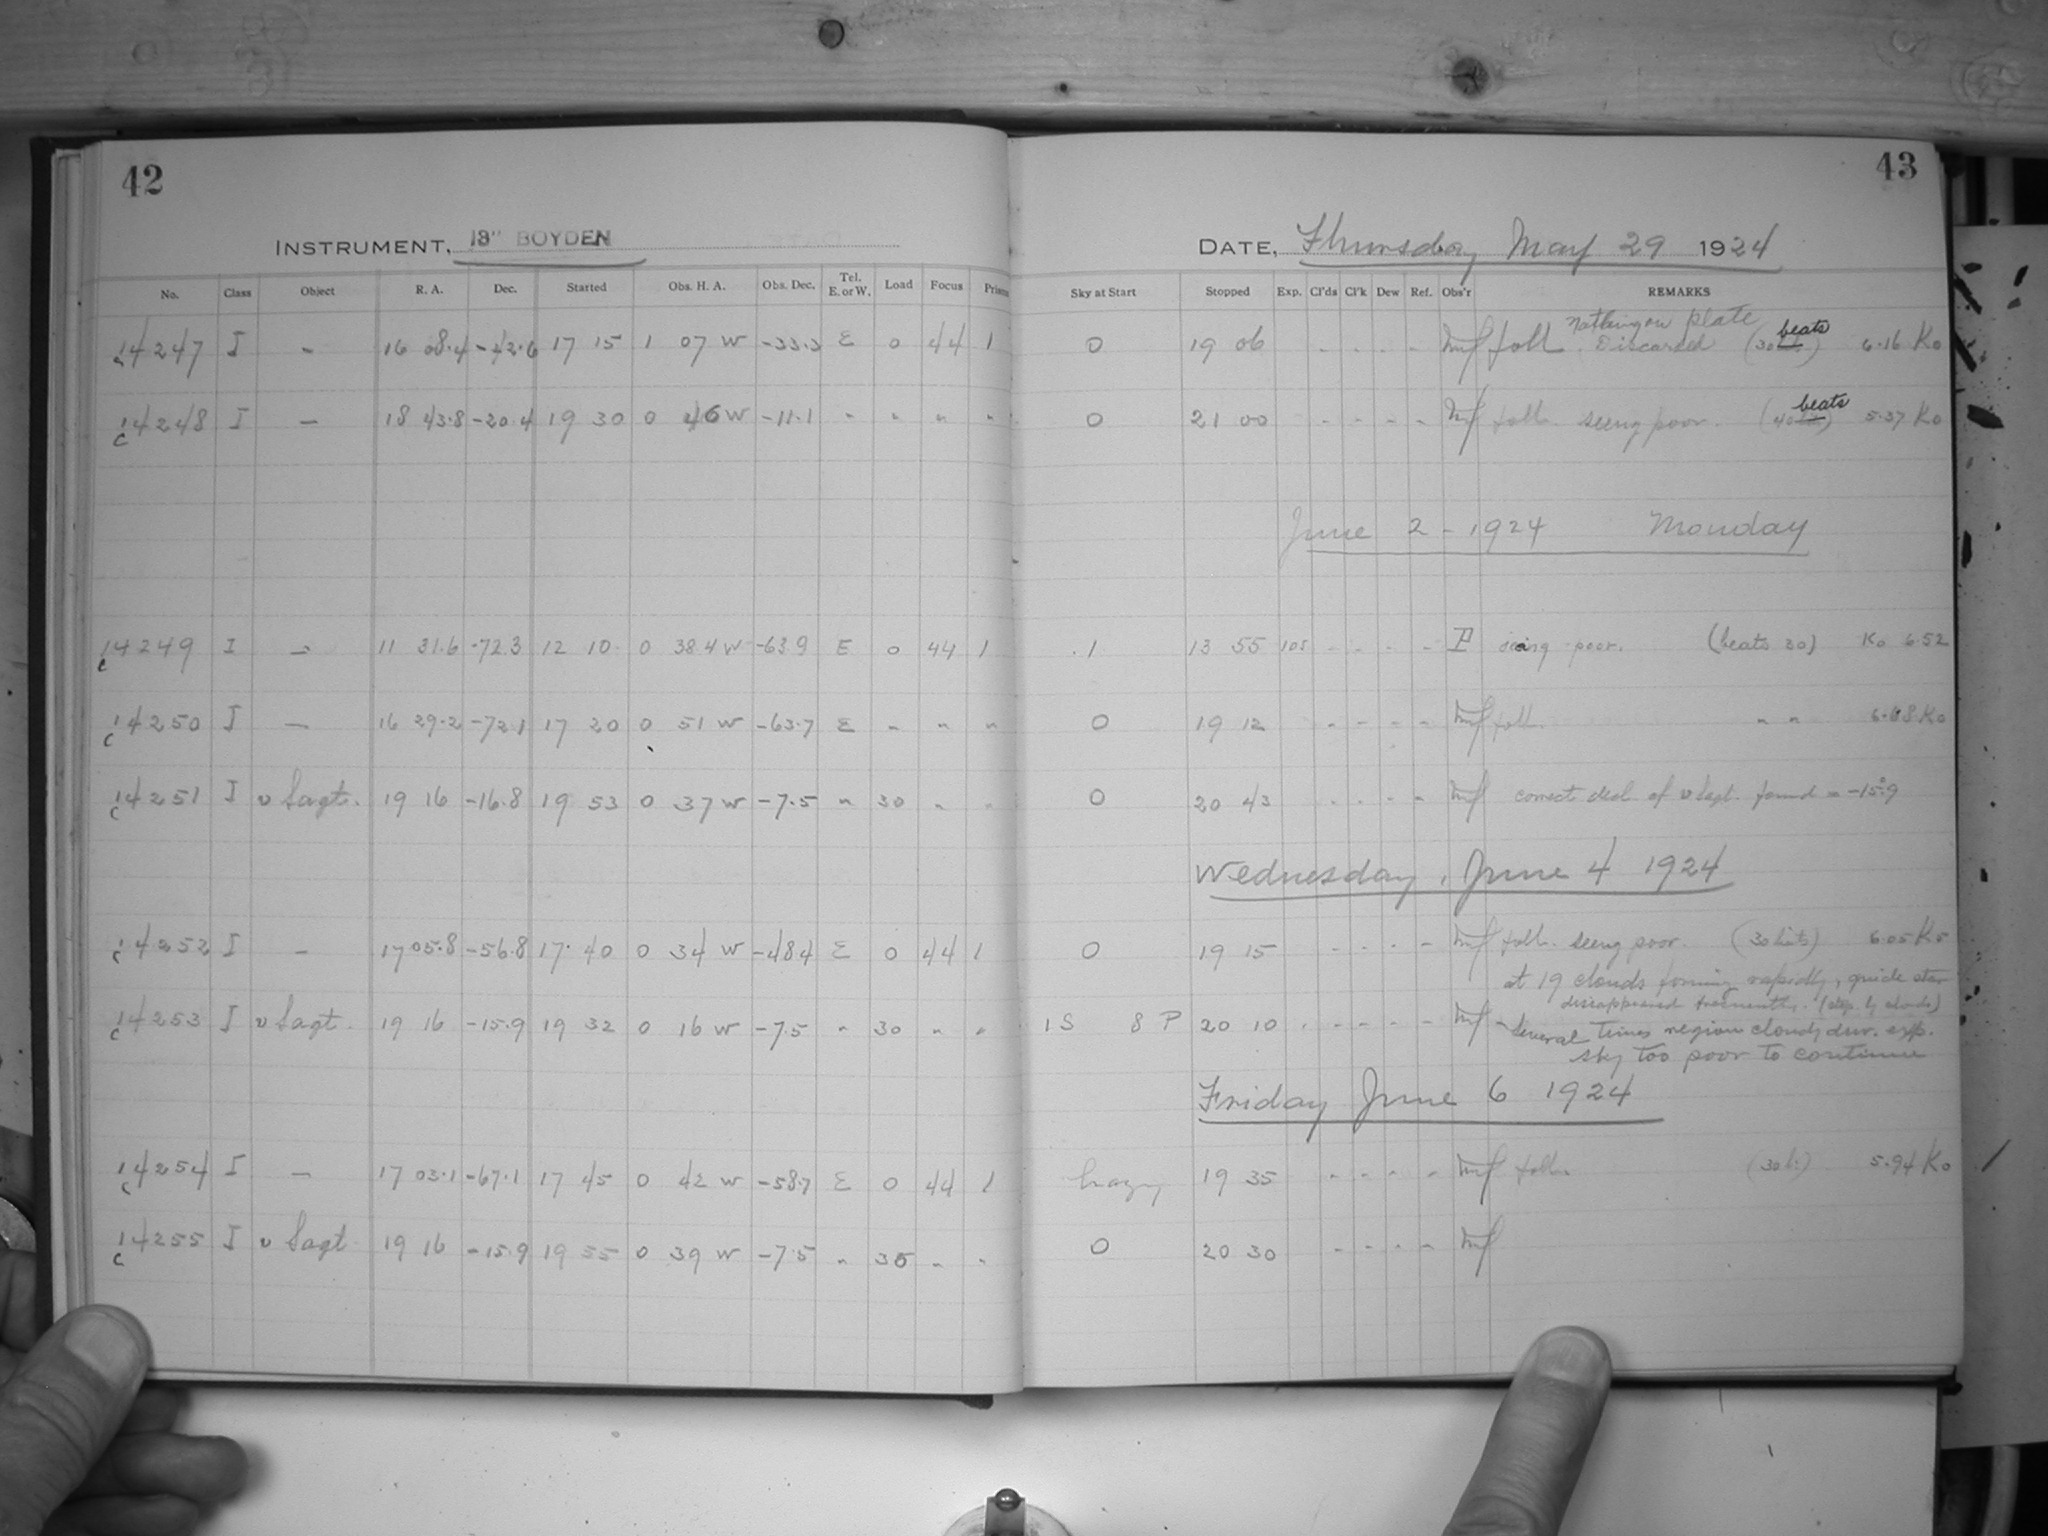 42
INSTRUMENT, 13" BOYDEN
No. Class Object R. A. Dec. Started Obs. H. A. Obs. Dec. Tel. E. or W. Load Focus Prisms
14247 I - 16 08.4 -42.6 17 15 1 07 W -33.3 E 0 44 1
c 14248 I - 18 43.8 -20.4 19 30 0 46 W -11.1 " " " "
c 14249 I - 11 31.6 -72.3 12 10 0 38.4 W -63.9 E 0 44 1
c 14250 I - 16 29.2 -72.1 17 20 0 51 W -63.7 E " " "
c 14251 I υ Sagt. 19 16 -16.8 19 53 0 37 W -7.5 " 30 " "
c 14252 I - 17 05.8 -56.8 17 40 0 34 W -48.4 E 0 44 1
c 14253 I υ Sagt. 19 16 -15.9 19 32 0 16 W -7.5 " 30 " "
c 14254 I - 17 03.1 -67.1 17 45 0 42 W -58.7 E 0 44 1
c 14255 I υ Sagt 19 16 -15.9 19 55 0 39 W -7.5 " 30 " "
43
DATE, Thursday May 29 1924
Sky at Start Stopped Exp. Cl'ds Cl'k Dew Ref. Obs'r REMARKS
0 19 06 - - - - foll. nothing on plate Discarded (30 beats) 6.16 Ko
0 21 00 - - - - foll. seeing poor. (40 beats) 5.37 Ko
June 2 - 1924 Monday
.1 13 55 105 - - - - P seeing poor. (beats 30) Ko 6.52
0 19 12 - - - - foll. " " Ko
0 20 43 - - - - correct decl. of υ Sagt. found = -15°.9
Wednesday, June 4 1924
0 19 15 - - - - foll. seeing poor. (30 bts) 6.05 Ko
at 19 clouds forming rapidly, guide star
disappeared frequently. (stop. by clouds)
1S 8 P 20 10 - - - - Several times region cloudy dur. exp.
sky too poor to continue
Friday June 6 1924
hazy 19 35 - - - - foll. (30 b.) 5.94 Ko
0 20 30 - - - -